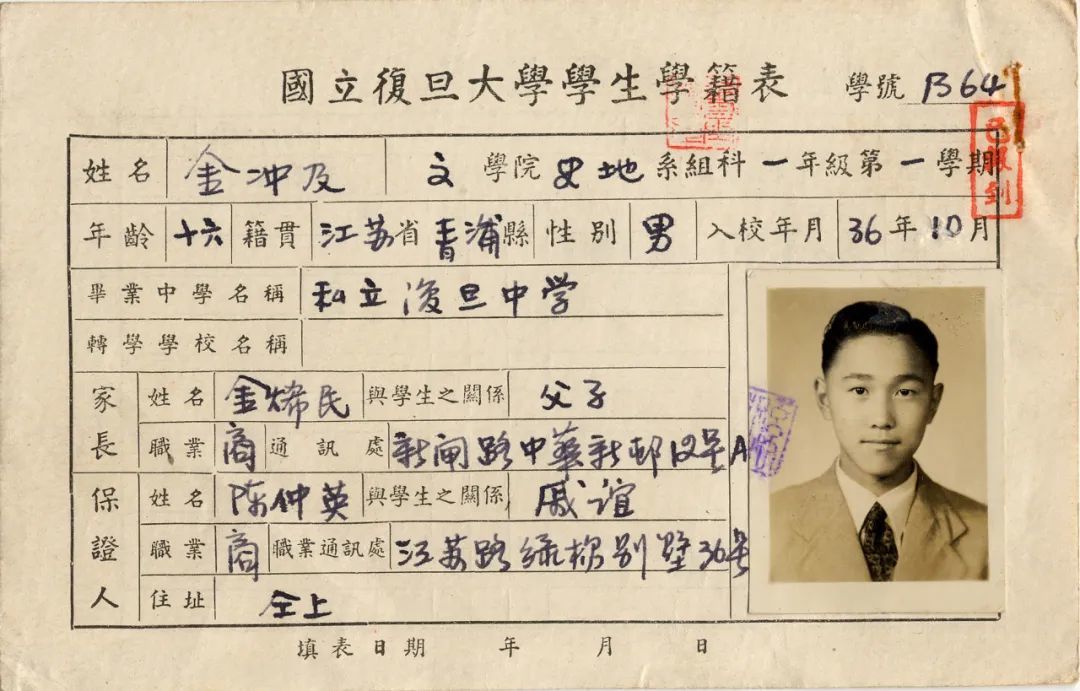 國立復旦大學學生學籍表 學號 B64
已報到
姓名 金冲及 文學院史地系組科一年級第一學期
年齡 十六 籍貫 江苏省青浦縣 性別 男 入校年月 36年10月
畢業中學名稱 私立復旦中学
轉學學校名稱
家長 姓名 金烯民 與學生之關係 父子
職業 商 通訊處 新闸路中華新邨
保證人 姓名 陈仲英 與學生之關係 戚谊
職業 商 職業通訊處 江苏路绿杨别墅36号
住址 仝上
填表日期 年 月 日